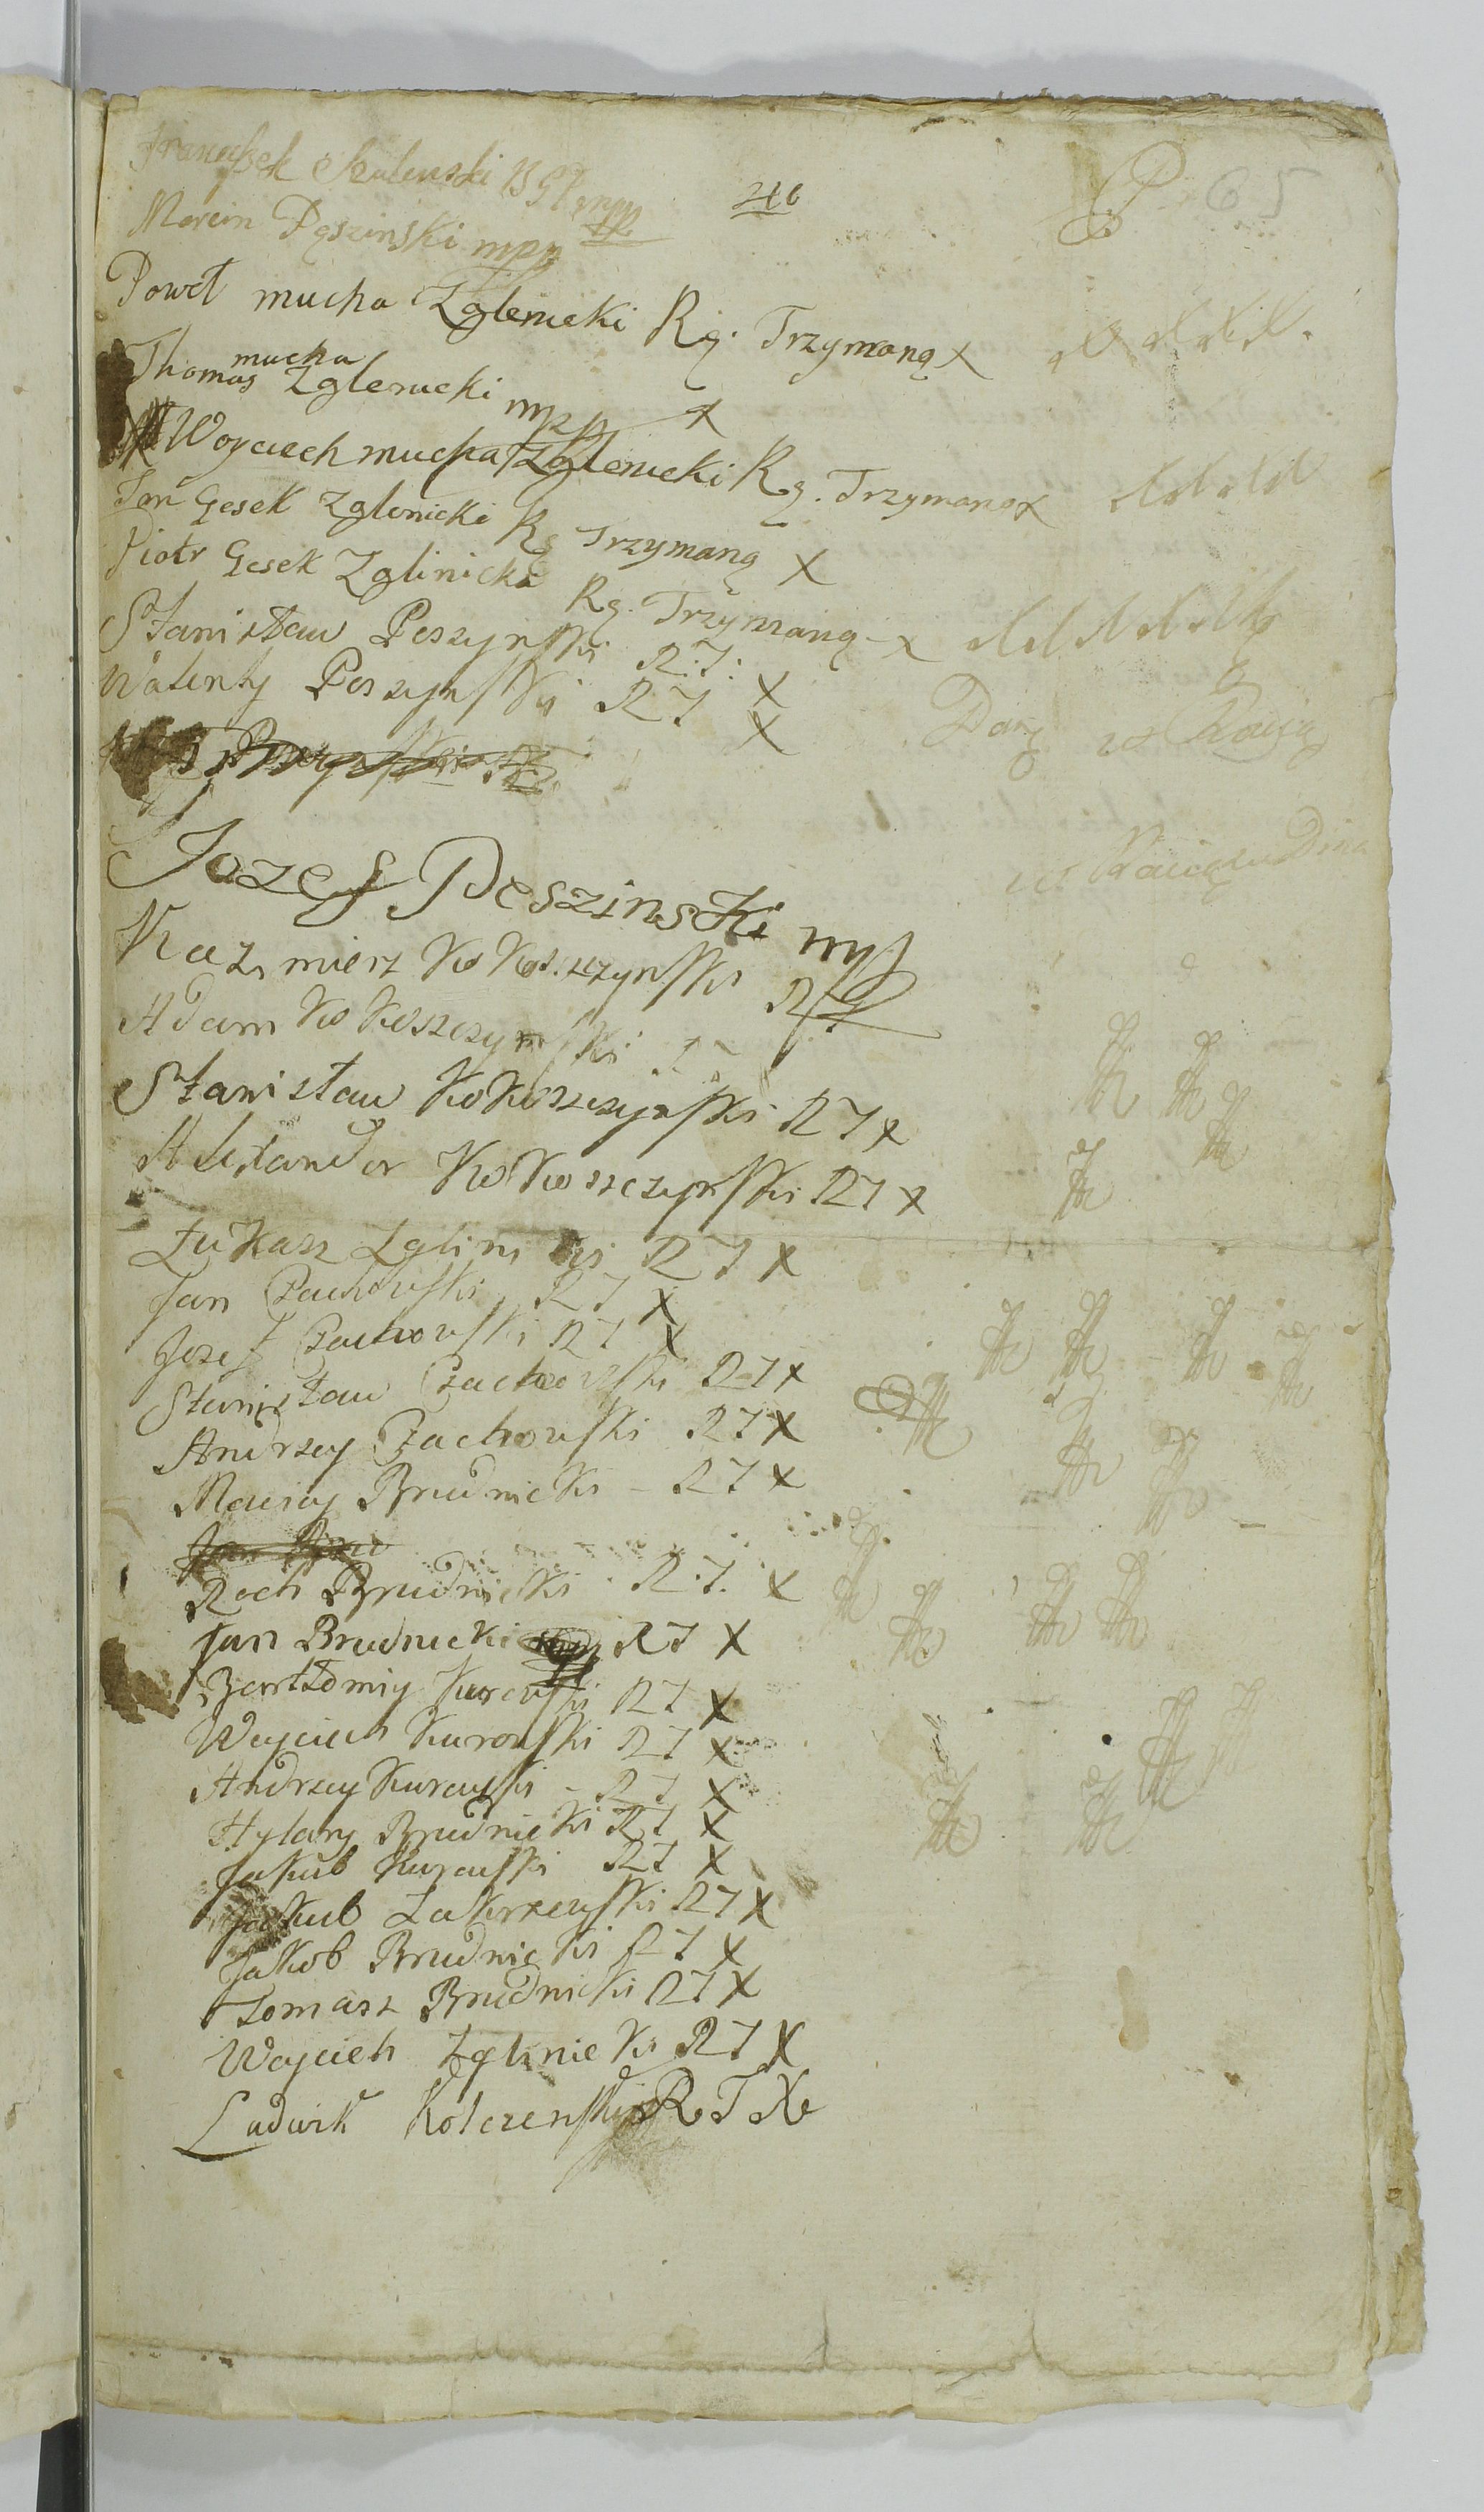 46
65
Franciszek Skulenski B G P mpp
Marcin Pęszinski mpp
Poweł mucha Zglenicki Rę. Trzymaną X
mucha
Thomas Zglenicki mpp X
Woyciech mucha Zglenicki Rę. Trzymano X
Jan Gesek Zglenicki Rę Trzymaną X
Piotr Gesek Zglinicki Rę. Trzymaną - X
Stanisław Peszynski R: T: X
Walenty Peszynski R T X
Jozef Peszinski mp
Kazimierz Kokoszczynski R T
Adam Kokoszczynski
Stanisław Kokoszczynski R T X
Alexander Kokoszczynski R T X
Łukasz Zglinicki R T X
Jan Czachowski R T X
Jozef Czachowski R T X
Stanisław Czachowski R T X
Andrzey Czachowski R T X
Maciey Brudnicki - R T X
Roch Brudnicki R. T. X
Jan Brudnicki R T X
Bartłomiy Kurowski R T X
Woyciech Kurowski R T X
Andrzey Kurowski - R T X
Hylary Brudnicki R T X
Jakub Kurowski R T X
Jakub Zakrzewski R T X
Jakob Brudnicki R T X
Tomasz Brudnicki R T X
Woyciech Zglinicki R T X
Ludwik Kolczenski R T X